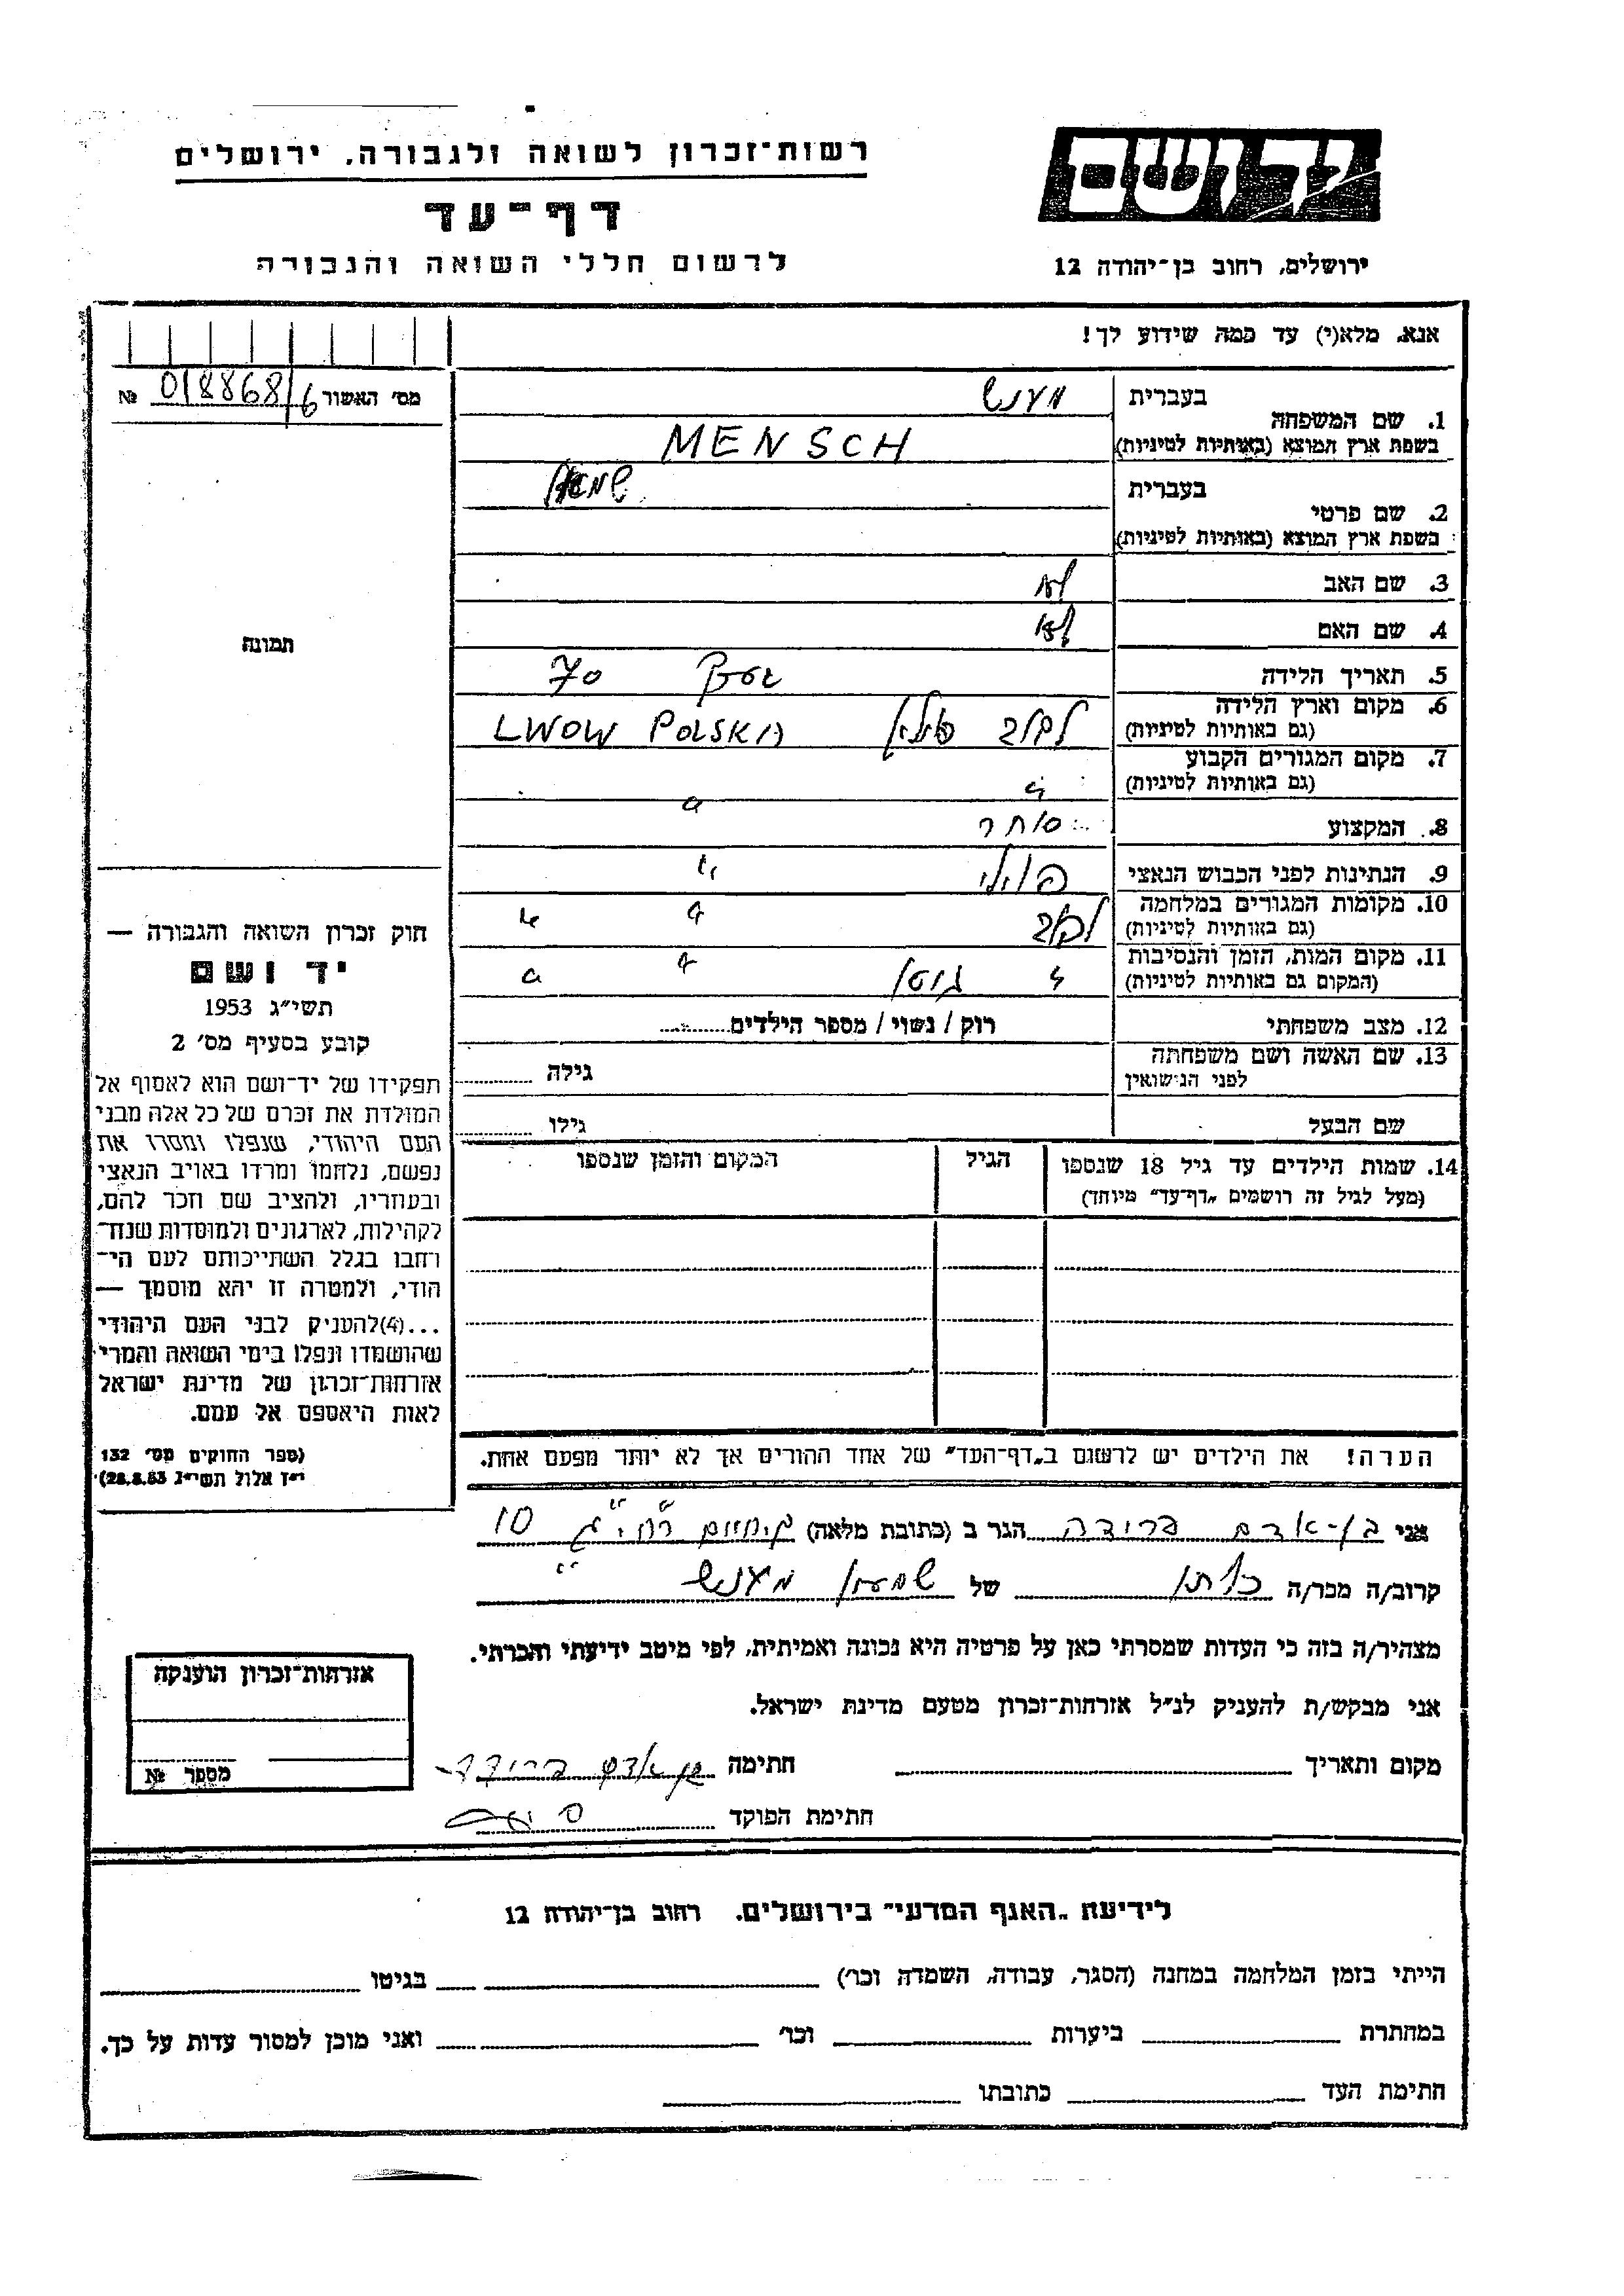 רשות־זכרון לשואה ולגבורה, ירושלים
יד ושם
דף־עד
לרשום חללי השואה והגבורה
ירושלים, רחוב בן־יהודה 12
אנא, מלא(י) עד כמה שידוע לך!
מס' האשור № 018868/6
1. שם המשפחה
בעברית מענש
בשפת ארץ המוצא (באותיות לטיניות) MENSCH
2. שם פרטי
בעברית שמעון
בשפת ארץ המוצא (באותיות לטיניות)
3. שם האב לא
4. שם האם לא
תמונה
5. תאריך הלידה 70
6. מקום וארץ הלידה לבוב פולין LWOW POLSKA
(גם באותיות לטיניות)
7. מקום המגורים הקבוע " "
(גם באותיות לטיניות)
8. המקצוע סוחר
9. הנתינות לפני הכבוש הנאצי פולני "
10. מקומות המגורים במלחמה לבוב " "
(גם באותיות לטיניות)
11. מקום המות, הזמן והנסיבות " גיטו " "
(המקום גם באותיות לטיניות)
12. מצב משפחתי רוק / נשוי / מספר הילדים
13. שם האשה ושם משפחתה גילה
לפני הנישואין
שם הבעל גילו
14. שמות הילדים עד גיל 18 שנספו הגיל המקום והזמן שנספו
(מעל לגיל זה רושמים „דף־עד" מיוחד)
חוק זכרון השואה והגבורה —
יד ושם
תשי״ג 1953
קובע בסעיף מס' 2
תפקידו של יד־ושם הוא לאסוף אל
המולדת את זכרם של כל אלה מבני
העם היהודי, שנפלו ומסרו את
נפשם, נלחמו ומרדו באויב הנאצי
ובעוזריו, ולהציב שם וזכר להם,
לקהילות, לארגונים ולמוסדות שנח־
רחבו בגלל השתייכותם לעם הי־
הודי, ולמטרה זו יהא מוסמך —
...(4)להעניק לבני העם היהודי
שהושמדו ונפלו בימי השואה והמרי
אזרחות־זכרון של מדינת ישראל
לאות היאספם אל עמם.
(ספר החוקים מס' 132
י״ז אלול תשי״ג 28.8.53)
הערה! את הילדים יש לרשום ב„דף־העד" של אחד ההורים אך לא יותר מפעם אחת.
אני בן-אדם פרידה הגר ב (כתובת מלאה) 10
קרוב/ה מכר/ה כלתו של שמעון מענש
מצהיר/ה בזה כי העדות שמסרתי כאן על פרטיה היא נכונה ואמיתית, לפי מיטב ידיעתי והכרתי.
אני מבקש/ת להעניק לנ״ל אזרחות־זכרון מטעם מדינת ישראל.
מקום ותאריך חתימה בן אדם פרידה
חתימת הפוקד
אזרחות־זכרון הוענקה
מספר №
לידיעת „האגף המדעי" בירושלים. רחוב בן־יהודה 12
הייתי בזמן המלחמה במחנה (הסגר, עבודה, השמדה וכו') בגיטו
במחתרת ביערות וכו' ואני מוכן למסור עדות על כך.
חתימת העד כתובתו